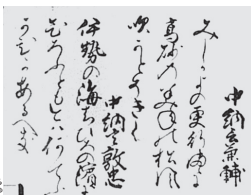 中納言兼輔
みしかよの更行まゝに
高砂のみねの松風
吹かとそきく
中納言敦忠
伊勢の海ちひろの濱に
ひろふとも今ハ何てふ
かひかあるへき